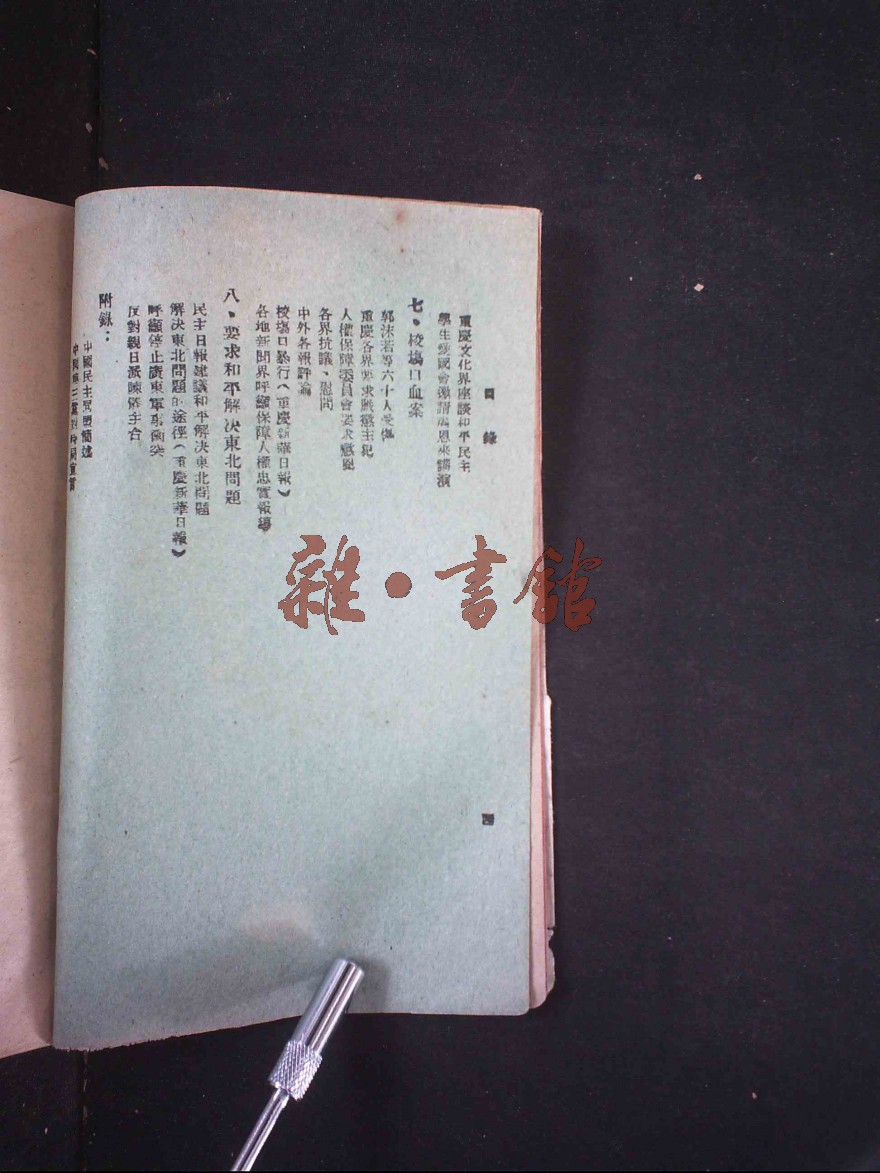 目錄
四
重慶文化界座談和平民主
學生愛國會邀請周恩來講演
七、校場口血案
郭沫若等六十人受傷
重慶各界要求嚴懲主犯
人權保障委員會要求懲兇
各界抗議、慰問
中外各報評論
校場口暴行(重慶新華日報)
各地新聞界呼籲保障人權忠實報導
八、要求和平解決東北問題
民主日報建議和平解決東北問題
解決東北問題的途徑(重慶新華日報)
呼籲停止廣東軍事衝突
反對親日派陳儀主台
附錄:
中國民主同盟簡述
雜·書館